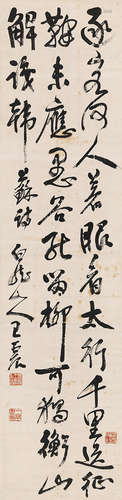 逐客何人著眼看太行千里送征
鞍未應愚谷能留柳可獨衡山
解識韓 蘇詩 白龍山人王震